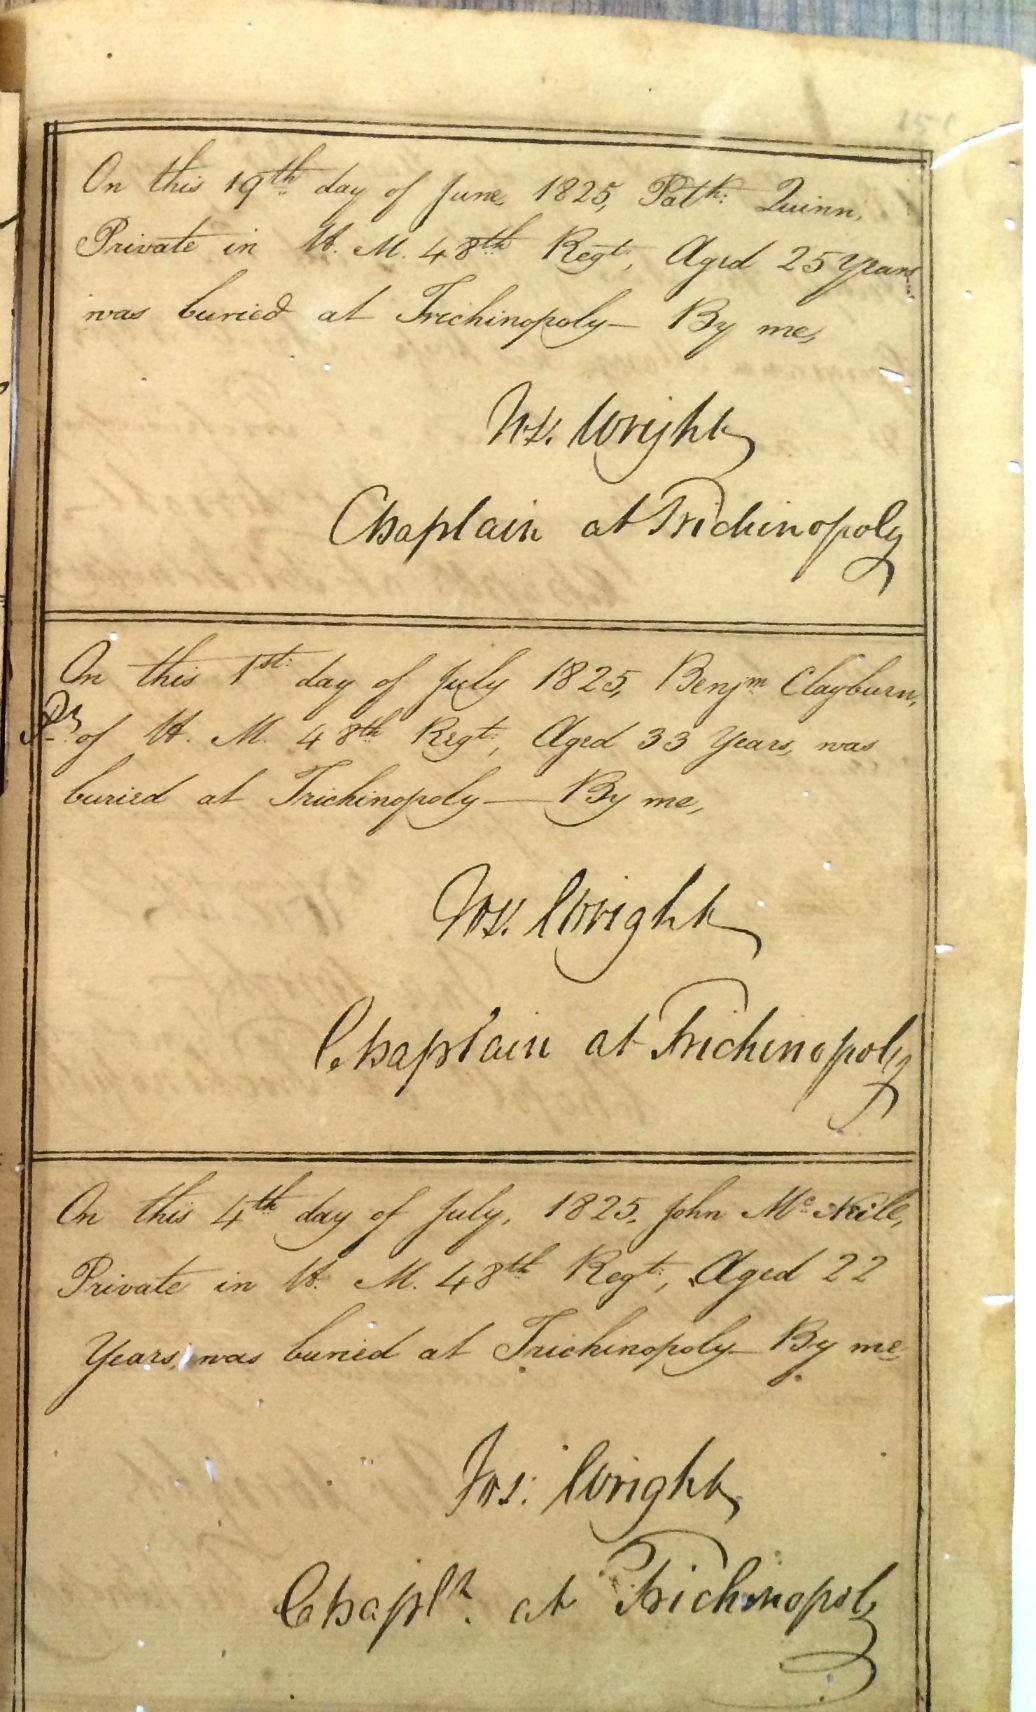 151
On this 19th day of June, 1825, Patk: Quinn,
Private in H. M. 48th Regt:, Aged 25 Years
was buried at Trichinopoly— By me,
Jos. Wright
Chaplain at Trichinopoly
On this 1st: day of July 1825, Benjm Clayburn,
of H. M. 48th Regt:, Aged 33 Years, was
buried at Trichinopoly— By me,
Jos. Wright
Chaplain at Trichinopoly
On this 4th day of July, 1825, John Mc Neill,
Private in H. M. 48th Regt:, Aged 22
Years, was buried at Trichinopoly— By me
Jos: Wright
Chapln. at Trichinopoly